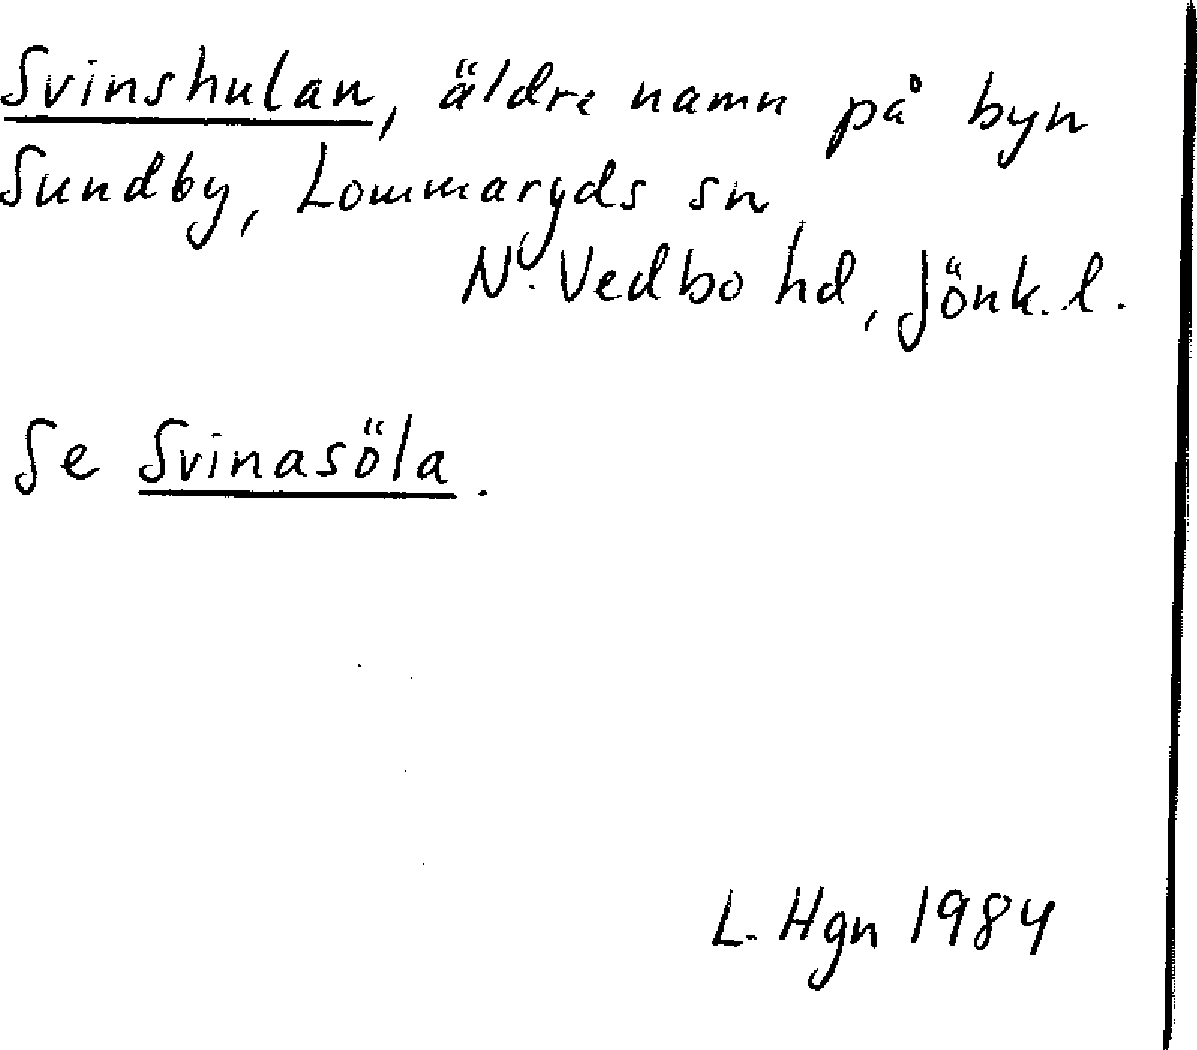 Svinshulan, äldre namn på byn
Sundby, Lommaryds sn
N. Vedbo hd, Jönk. l.
Se Svinasöla.
L. Hgn 1984